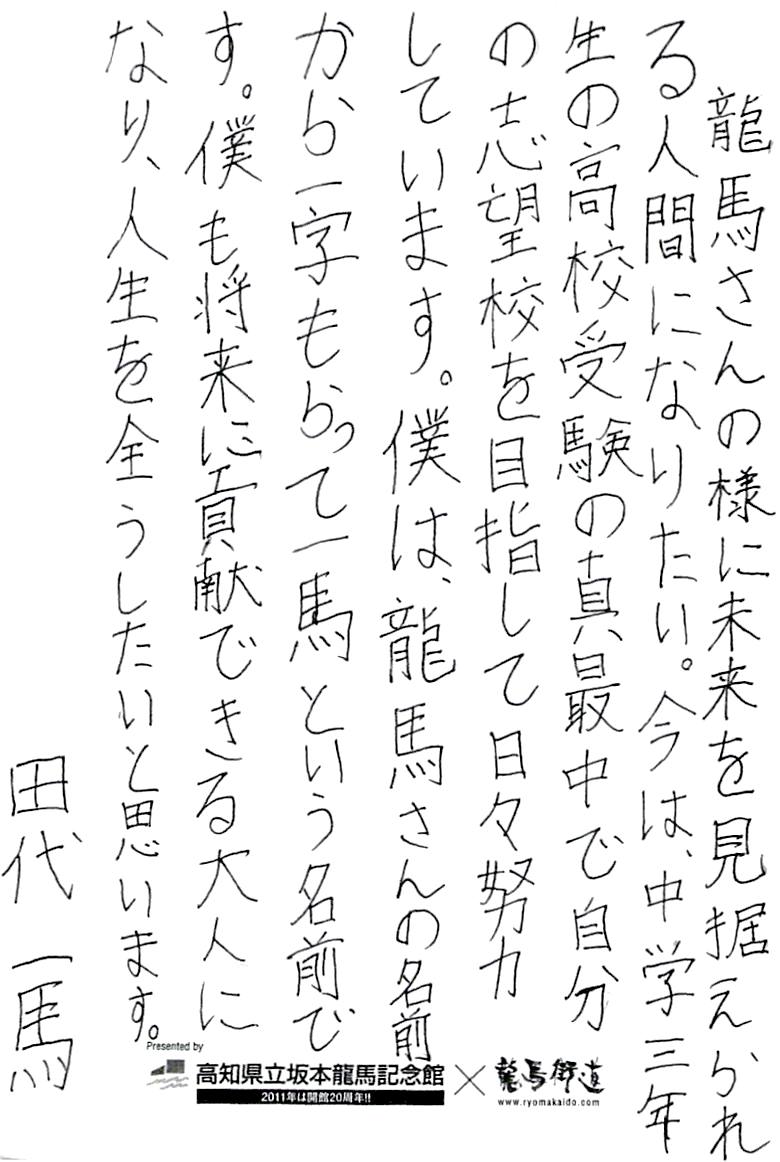 龍馬さんの様に未来を見据えられ
る人間になりたい。今は、中学三年
生の高校受験の真最中で自分
の志望校を目指して日々努力
しています。僕は、龍馬さんの名前
から一字もらって一馬という名前で
す。僕も将来に貢献できる大人に
なり、人生を全うしたいと思います。
田代 一馬
Presented by
高知県立坂本龍馬記念館×龍馬街道
2011年は開館20周年!!
www.ryomakaido.com